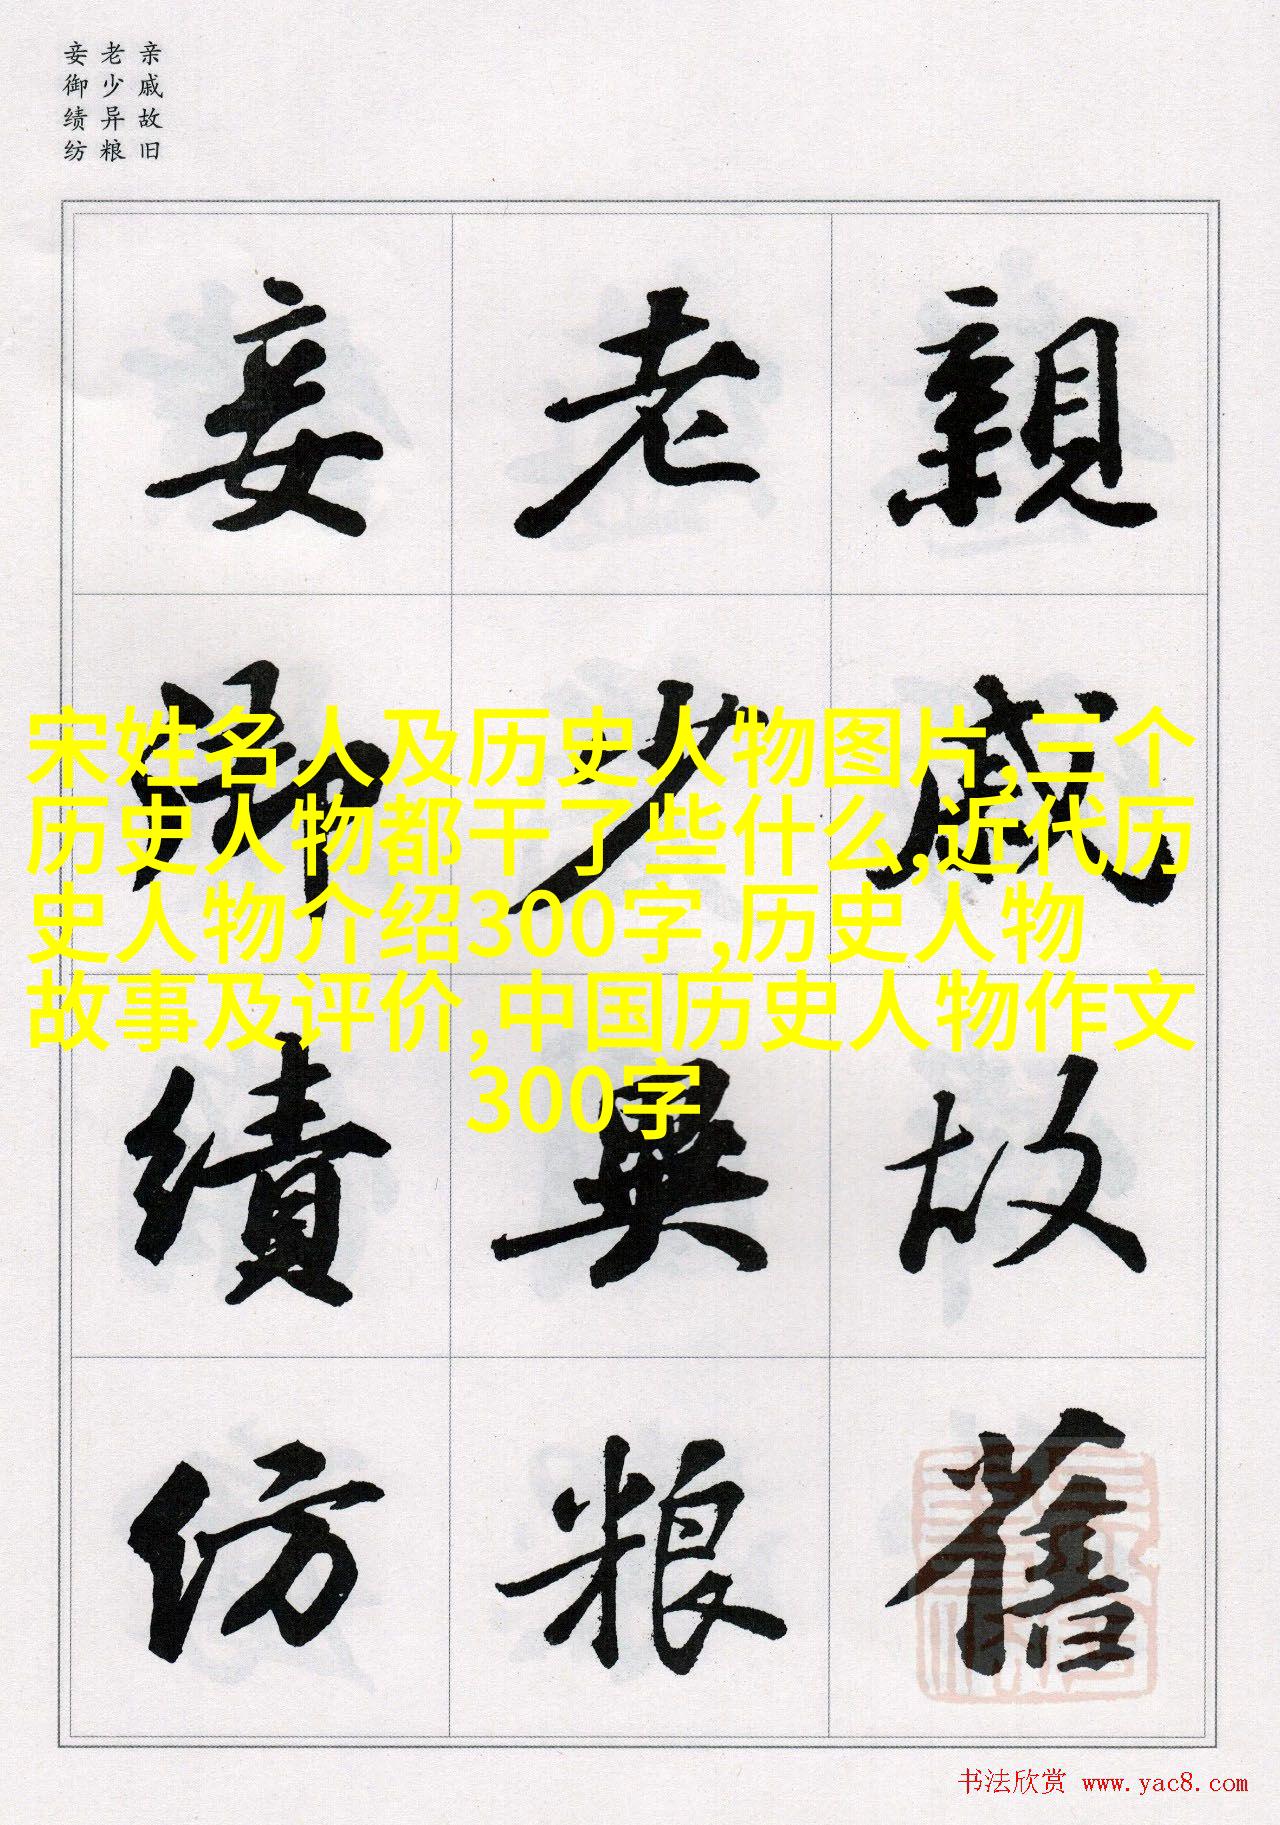 亲戚故旧
老少异粮
妾御绩纺
親戚故舊
老少異粮
妾御績紡
宋姓名人及历史人物图片,三个
历史人物都干了些什么,近代历
史人物介绍300字,历史人物
故事及评价,中国历史人物作文
300字
书法欣赏 www.yac8.com